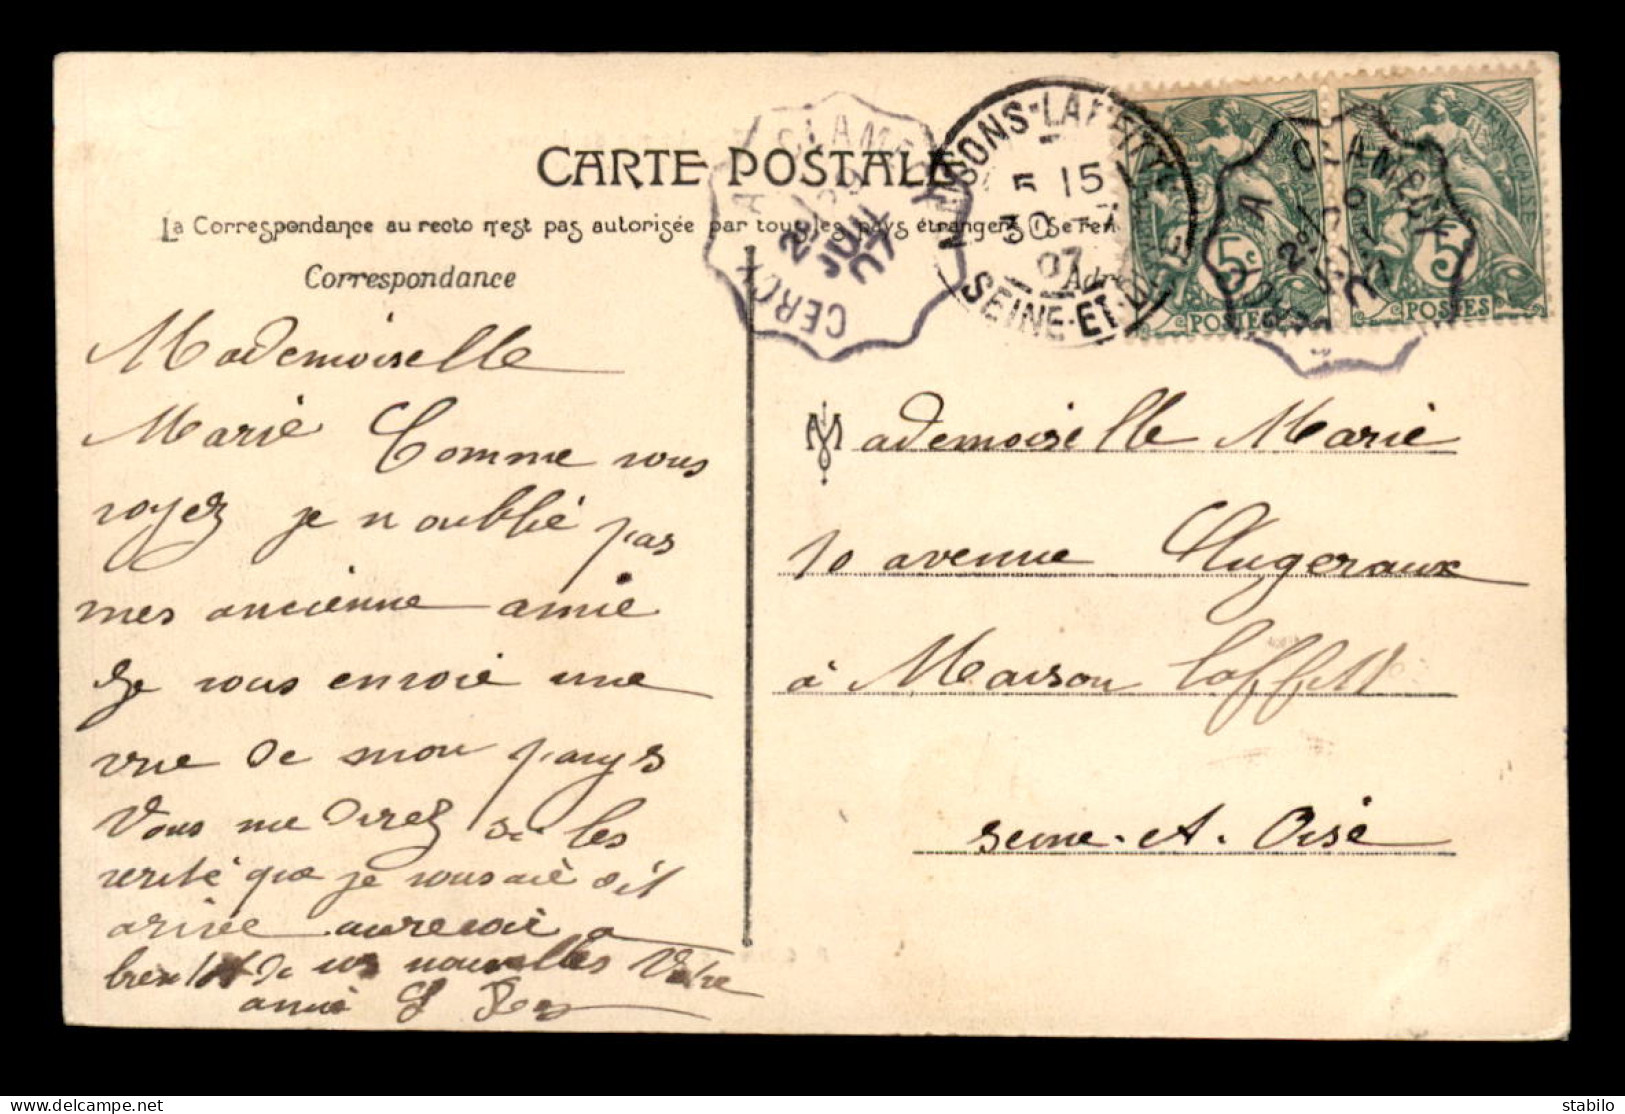 CARTE POSTALE
La Correspondance au recto n'est pas autorisée par tous les pays étrangers (Se ren
Correspondance
Adre
CLAMECY A CERCY
29 JUIL 07
MAISONS-LAFFITTE
5 15
30 -7
07
SEINE-ET-OISE
5c
POSTES
FRANÇAISE
5
POSTES
CLAMECY A
29
Mademoiselle
Marie Comme vous
voyez je n'oublie pas
mes ancienne amie
Je vous envoie une
vue de mon pays
Vous me direz si les
verité que je vous aie dit
arivée aurevoir a
bientot de vos nouvelles Votre
amie
Mademoiselle Marie
10 avenue
à Maison Laffitt
Seine-et-Oise
stabilo